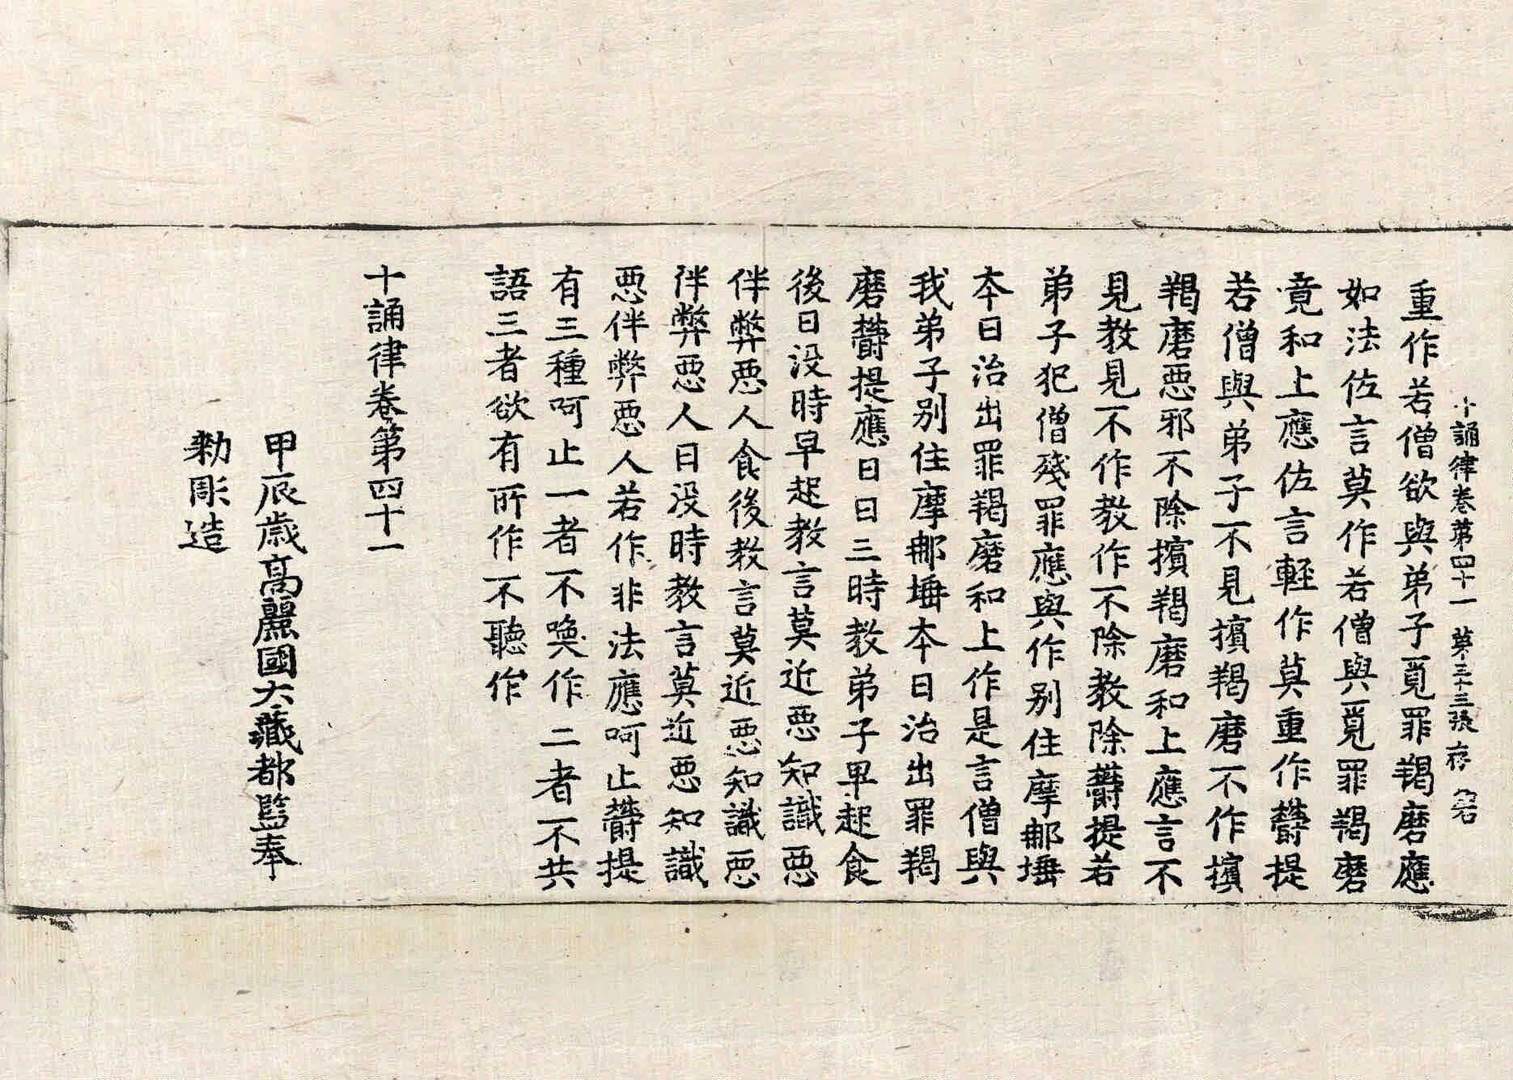 十誦律卷第四十一 第三十三張 存
重作若僧欲與弟子覓罪羯磨應
如法佐言莫作若僧與覓罪羯磨
竟和上應佐言輕作莫重作欝提
若僧與弟子不見擯羯磨不作擯
羯磨惡邪不除擯羯磨和上應言不
見教見不作教作不除教除欝提若
弟子犯僧殘罪應與作別住摩那埵
本日治出罪羯磨和上作是言僧與
我弟子別住摩那埵本日治出罪羯
磨欝提應日日三時教弟子早起食
後日没時早起教言莫近惡知識惡
伴弊惡人食後教言莫近惡知識惡
伴弊惡人日没時教言莫近惡知識
惡伴弊惡人若作非法應呵止欝提
有三種呵止一者不喚作二者不共
語三者欲有所作不聽作
十誦律卷第四十一
甲辰歲高麗國大藏都監奉
勅彫造